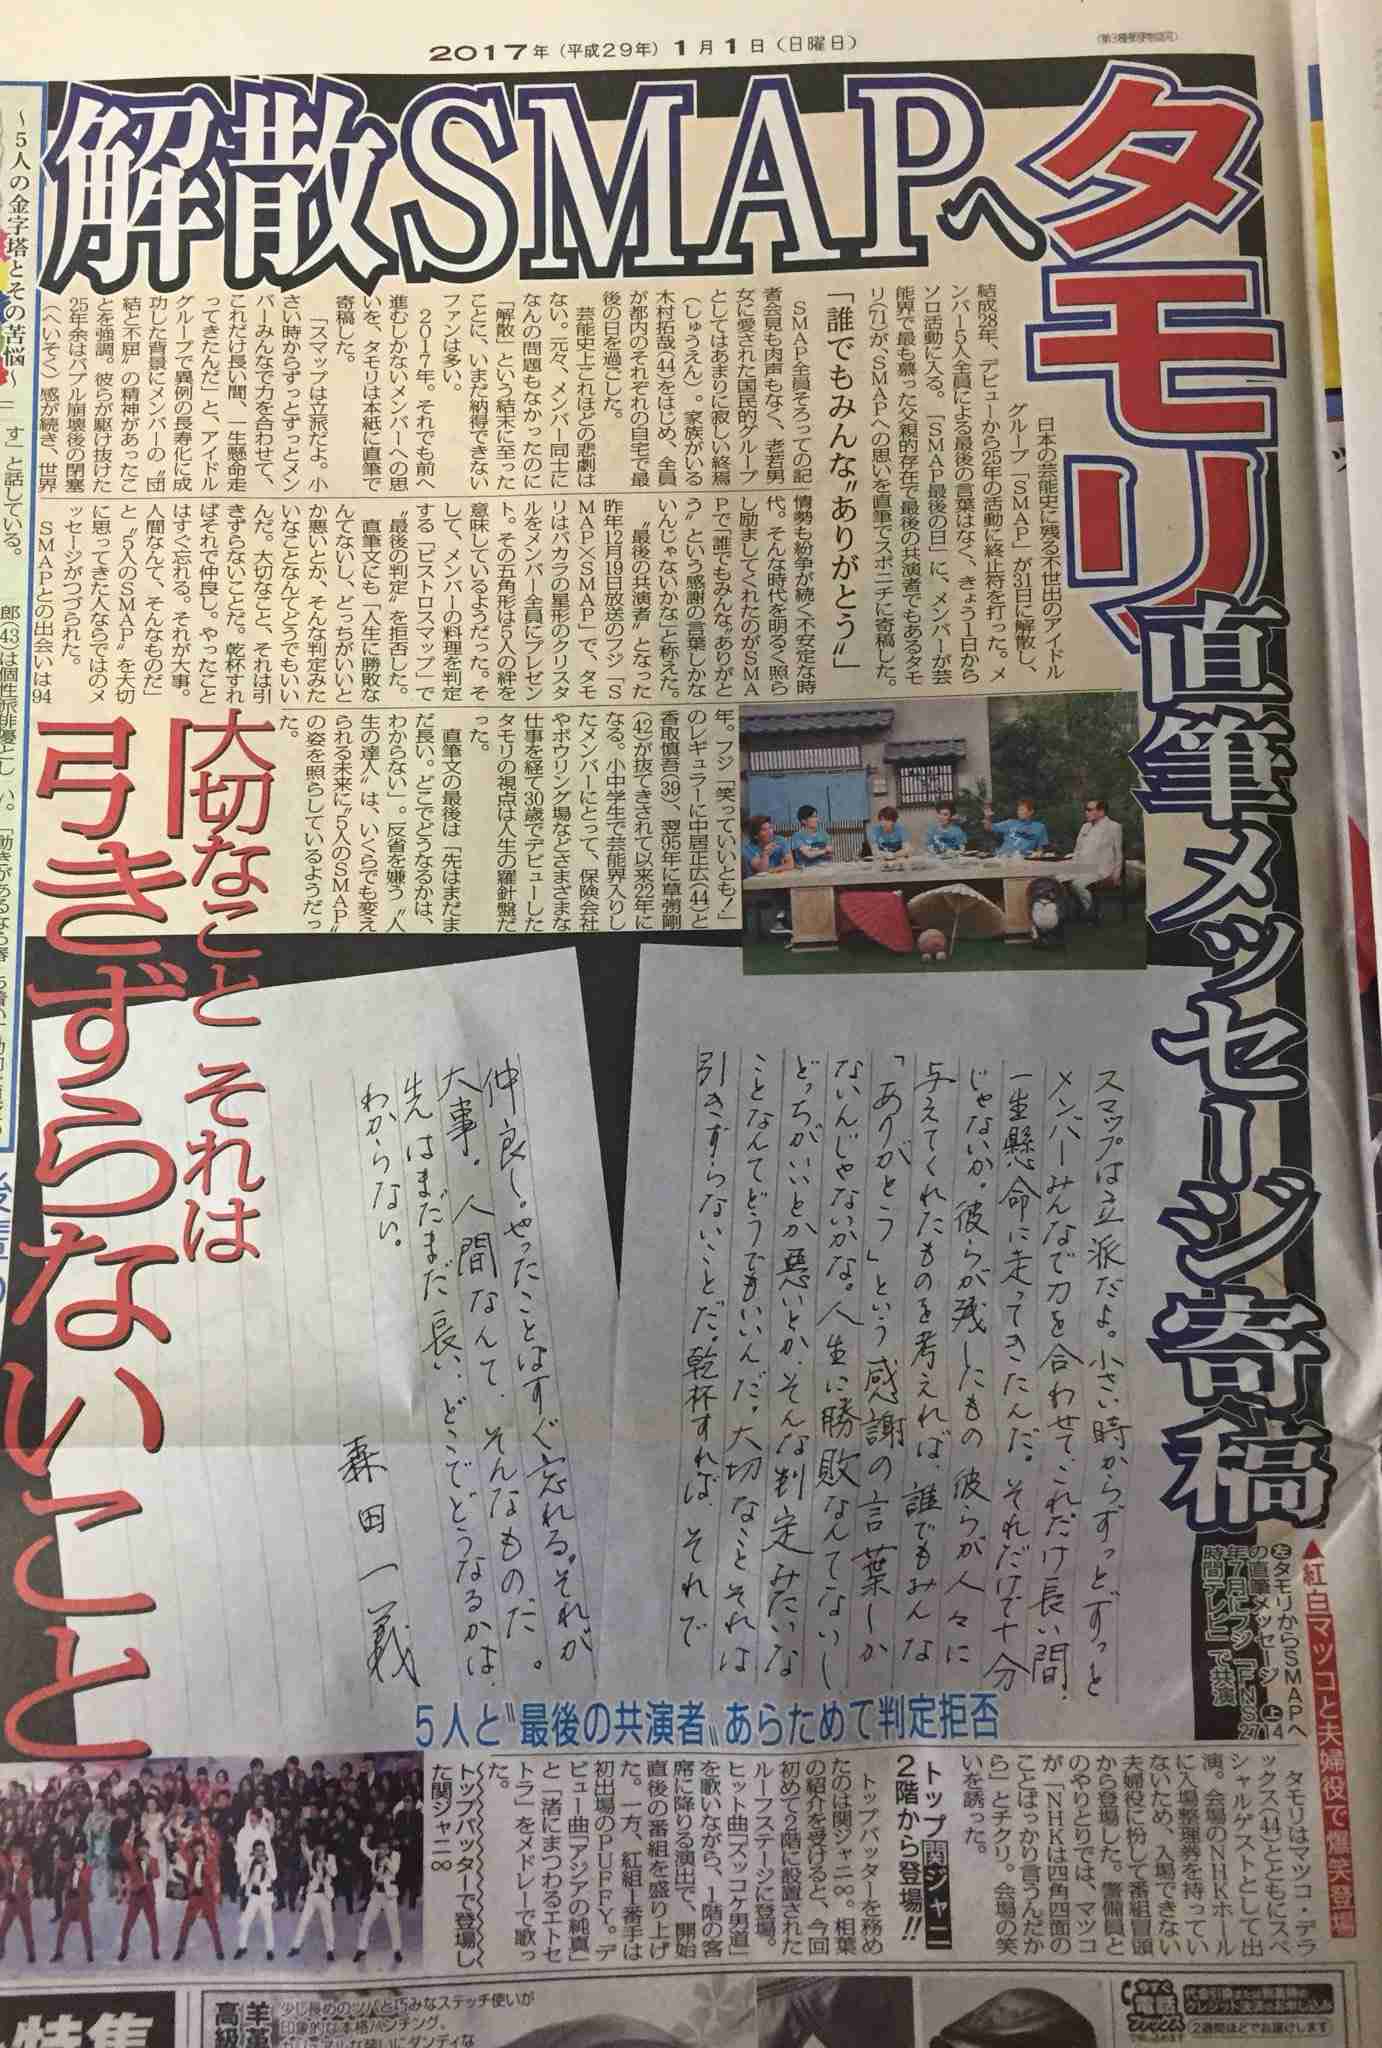 2017年(平成29年)1月1日(日曜日)
解散SMAPへ
タモリ
直筆メッセージ寄稿
日本の芸能史に残る不世出のアイドル
グループ「SMAP」が31日に解散し、
結成28年、デビューから25年の活動に終止符を打った。メ
ンバー5人全員による最後の言葉はなく、きょう1日から
ソロ活動に入る。「SMAP最後の日」に、メンバーが芸
能界で最も慕った父親的存在で最後の共演者でもあるタモ
リ(71)が、SMAPへの思いを直筆でスポニチに寄稿した。
「誰でもみんな〝ありがとう〟」
SMAP全員そろっての記
者会見も肉声もなく、老若男
女に愛された国民的グループ
としてはあまりに寂しい終焉
(しゅうえん)。家族がいる
木村拓哉(44)をはじめ、全員
が都内のそれぞれの自宅で最
後の日を過ごした。
芸能史上これほどの悲劇は
ない。元々、メンバー同士に
なんの問題もなかったのに
「解散」という結末に至った
ことに、いまだ納得できない
ファンは多い。
2017年。それでも前へ
進むしかないメンバーへの思
いを、タモリは本紙に直筆で
寄稿した。
「スマップは立派だよ。小
さい時からずっとずっとメン
バーみんなで力を合わせて、
これだけ長い間、一生懸命走
ってきたんだ」と、アイドル
グループで異例の長寿化に成
功した背景にメンバーの〝団
結と不屈〟の精神があったこ
とを強調。彼らが駆け抜けた
25年余はバブル崩壊後の閉塞
(へいそく)感が続き、世界
情勢も紛争が続く不安定な時
代。そんな時代を明るく照ら
し励ましてくれたのがSMA
Pで「誰でもみんな〝ありがと
う〟という感謝の言葉しかな
いんじゃないかな」と称えた。
〝最後の共演者〟となった
昨年12月19日放送のフジ「S
MAP×SMAP」で、タモ
リはバカラの星形のクリスタ
ルをメンバー全員にプレゼン
ト。その五角形は5人の絆を
意味しているようだった。そ
して、メンバーの料理を判定
する「ビストロスマップ」で
〝最後の判定〟を拒否した。
直筆文にも「人生に勝敗な
んてないし、どっちがいいと
か悪いとか、そんな判定みた
いなことなんてどうでもいい
んだ。大切なこと、それは引
きずらないことだ。乾杯すれ
ばそれで仲良し。やったこと
はすぐ忘れる。それが大事。
人間なんて、そんなものだ」
と〝5人のSMAP〟を大切
に思ってきた人ならではのメ
ッセージがつづられた。
SMAPとの出会いは94
年。フジ「笑っていいとも!」
のレギュラーに中居正広(44)と
香取慎吾(39)、翌95年に草彅剛
(42)が抜てきされて以来22年に
なる。小中学生で芸能界入りし
たメンバーにとって、保険会社
やボウリング場などさまざまな
仕事を経て30歳でデビューした
タモリの視点は人生の羅針盤だ
った。
直筆文の最後は「先はまだま
だ長い。どこでどうなるかは、
わからない」。反省を嫌う〝人
生の達人〟は、いくらでも変え
られる未来に〝5人のSMAP〟
の姿を照らしているようだっ
た。
大切なこと それは
引きずらないこと
スマップは立派だよ。小さい時からずっとずっと
メンバーみんなで力を合わせて、これだけ長い間、
一生懸命に走ってきたんだ。それだけで十分
じゃないか。彼らが残したもの 彼らが人々に
与えてくれたものを考えれば、誰でもみんな
「ありがとう」という感謝の言葉しか
ないんじゃないかな。人生に勝敗なんてないし
どっちがいいとか悪いとか、そんな判定みたいな
ことなんてどうでもいいんだ。大切なこと それは
引きずらないことだ。乾杯すれば、それで
仲良し。やったことはすぐ忘れる。それが
大事。人間なんて、そんなものだ。
先はまだまだ長い、どこでどうなるかは、
わからない。
森田一義
5人と〝最後の共演者〟あらためて判定拒否
左タモリからSMAPへ
の直筆メッセージ 上14
年7月にフジ「FNS27
時間テレビ」で共演
▲紅白マツコと夫婦役で爆笑登場
タモリはマツコ・デラ
ックス(44)とともにスペ
シャルゲストとして出
演。会場のNHKホール
に入場整理券を持ってい
ないため、入場できない
夫婦役に扮して番組冒頭
から登場した。警備員と
のやりとりでは、マツコ
が「NHKは四角四面の
ことばっかり言うんだか
ら」とチクリ。会場の笑
いを誘った。
トップ関ジャニ
2階から登場!!
トップバッターを務め
たのは関ジャニ∞。相葉
の紹介を受けると、今回
初めて2階に設置された
ルーフステージに登場。
ヒット曲「ズッコケ男道」
を歌いながら、1階の客
席に降りる演出で、開始
直後の番組を盛り上げ
た。一方、紅組1番手は
初出場のPUFFY。デ
ビュー曲「アジアの純真」
と「渚にまつわるエトセ
トラ」をメドレーで歌っ
た。
トップバッターで登場し
た関ジャニ∞
~5人の金字塔とその苦悩~
す」と話している。
郎(43)は個性派俳優とし
特集
羊革
高級
少し長めのツバと巧みなステッチ使いが
印象的な本格ハンチング。
今すぐ
電話
2週間ほどでお届けします